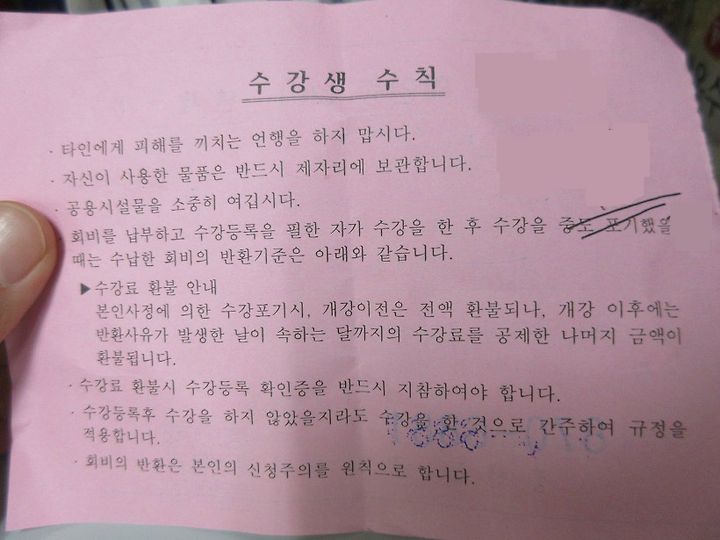 수강생 수칙
· 타인에게 피해를 끼치는 언행을 하지 맙시다.
· 자신이 사용한 물품은 반드시 제자리에 보관합니다.
· 공용시설물을 소중히 여깁시다.
· 회비를 납부하고 수강등록을 필한 자가 수강을 한 후 수강을 중도 포기했을
때는 수납한 회비의 반환기준은 아래와 같습니다.
▶수강료 환불 안내
본인사정에 의한 수강포기시, 개강이전은 전액 환불되나, 개강 이후에는
반환사유가 발생한 날이 속하는 달까지의 수강료를 공제한 나머지 금액이
환불됩니다.
· 수강료 환불시 수강등록 확인증을 반드시 지참하여야 합니다.
· 수강등록후 수강을 하지 않았을지라도 수강을 한 것으로 간주하여 규정을
적용합니다.
· 회비의 반환은 본인의 신청주의를 원칙으로 합니다.